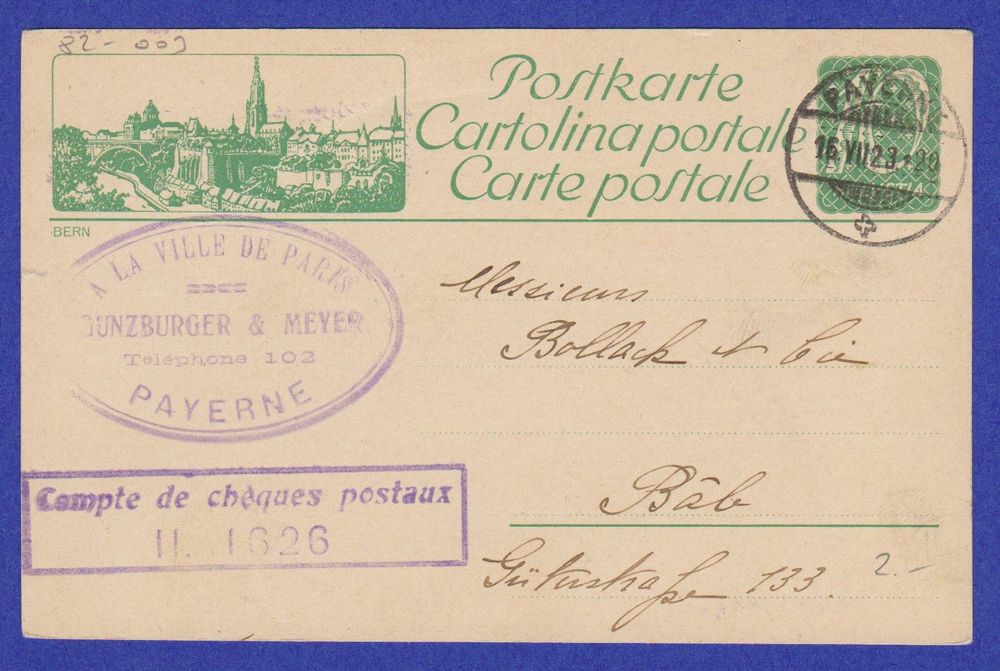 82-003
Postkarte
Cartolina postale
Carte postale
BERN
PAYERNE
16.VII.23.-20
A LA VILLE DE PARIS
GUNZBURGER & MEYER
Téléphone 102
PAYERNE
Compte de chèques postaux
II. 1626
Messieurs
Bollack & Cie
Bâle
Güterstraße 133.
2.-